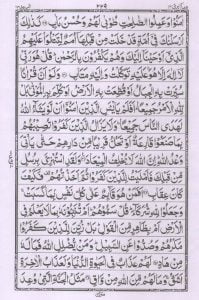 اٰمَنُوْا وَعَمِلُوا الصّٰلِحٰتِ طُوْبٰى لَهُمْ وَحُسْنُ مَاٰبٍ كَذٰلِكَ
اَرْسَلْنٰكَ فِيْٓ اُمَّةٍ قَدْ خَلَتْ مِنْ قَبْلِهَآ اُمَمٌ لِّتَتْلُوَا۟ عَلَيْهِمُ
الَّذِيْٓ اَوْحَيْنَآ اِلَيْكَ وَهُمْ يَكْفُرُوْنَ بِالرَّحْمٰنِ قُلْ هُوَ رَبِّيْ
لَآ اِلٰهَ اِلَّا هُوَ عَلَيْهِ تَوَكَّلْتُ وَاِلَيْهِ مَتَابِ وَلَوْ اَنَّ قُرْاٰنًا
سُيِّرَتْ بِهِ الْجِبَالُ اَوْ قُطِّعَتْ بِهِ الْاَرْضُ اَوْ كُلِّمَ بِهِ الْمَوْتٰى بَلْ
لِّلّٰهِ الْاَمْرُ جَمِيْعًا اَفَلَمْ يَايْـَٔسِ الَّذِيْنَ اٰمَنُوْٓا اَنْ لَّوْ يَشَآءُ اللّٰهُ
لَهَدَى النَّاسَ جَمِيْعًا وَلَا يَزَالُ الَّذِيْنَ كَفَرُوْا تُصِيْبُهُمْ
بِمَا صَنَعُوْا قَارِعَةٌ اَوْ تَحُلُّ قَرِيْبًا مِّنْ دَارِهِمْ حَتّٰى يَاْتِيَ
وَعْدُ اللّٰهِ اِنَّ اللّٰهَ لَا يُخْلِفُ الْمِيْعَادَ وَلَقَدِ اسْتُهْزِئَ بِرُسُلٍ
مِّنْ قَبْلِكَ فَاَمْلَيْتُ لِلَّذِيْنَ كَفَرُوْا ثُمَّ اَخَذْتُهُمْ فَكَيْفَ
كَانَ عِقَابِ اَفَمَنْ هُوَ قَآئِمٌ عَلٰى كُلِّ نَفْسٍ بِمَا كَسَبَتْ
وَجَعَلُوْا لِلّٰهِ شُرَكَآءَ قُلْ سَمُّوْهُمْ اَمْ تُنَبِّـُٔوْنَهٗ بِمَا لَا يَعْلَمُ فِي
الْاَرْضِ اَمْ بِظَاهِرٍ مِّنَ الْقَوْلِ بَلْ زُيِّنَ لِلَّذِيْنَ كَفَرُوْا
مَكْرُهُمْ وَصُدُّوْا عَنِ السَّبِيْلِ وَمَنْ يُّضْلِلِ اللّٰهُ فَمَا لَهٗ
مِنْ هَادٍ لَهُمْ عَذَابٌ فِي الْحَيٰوةِ الدُّنْيَا وَلَعَذَابُ الْاٰخِرَةِ
اَشَقُّ وَمَا لَهُمْ مِّنَ اللّٰهِ مِنْ وَّاقٍ مَثَلُ الْجَنَّةِ الَّتِيْ وُعِدَ